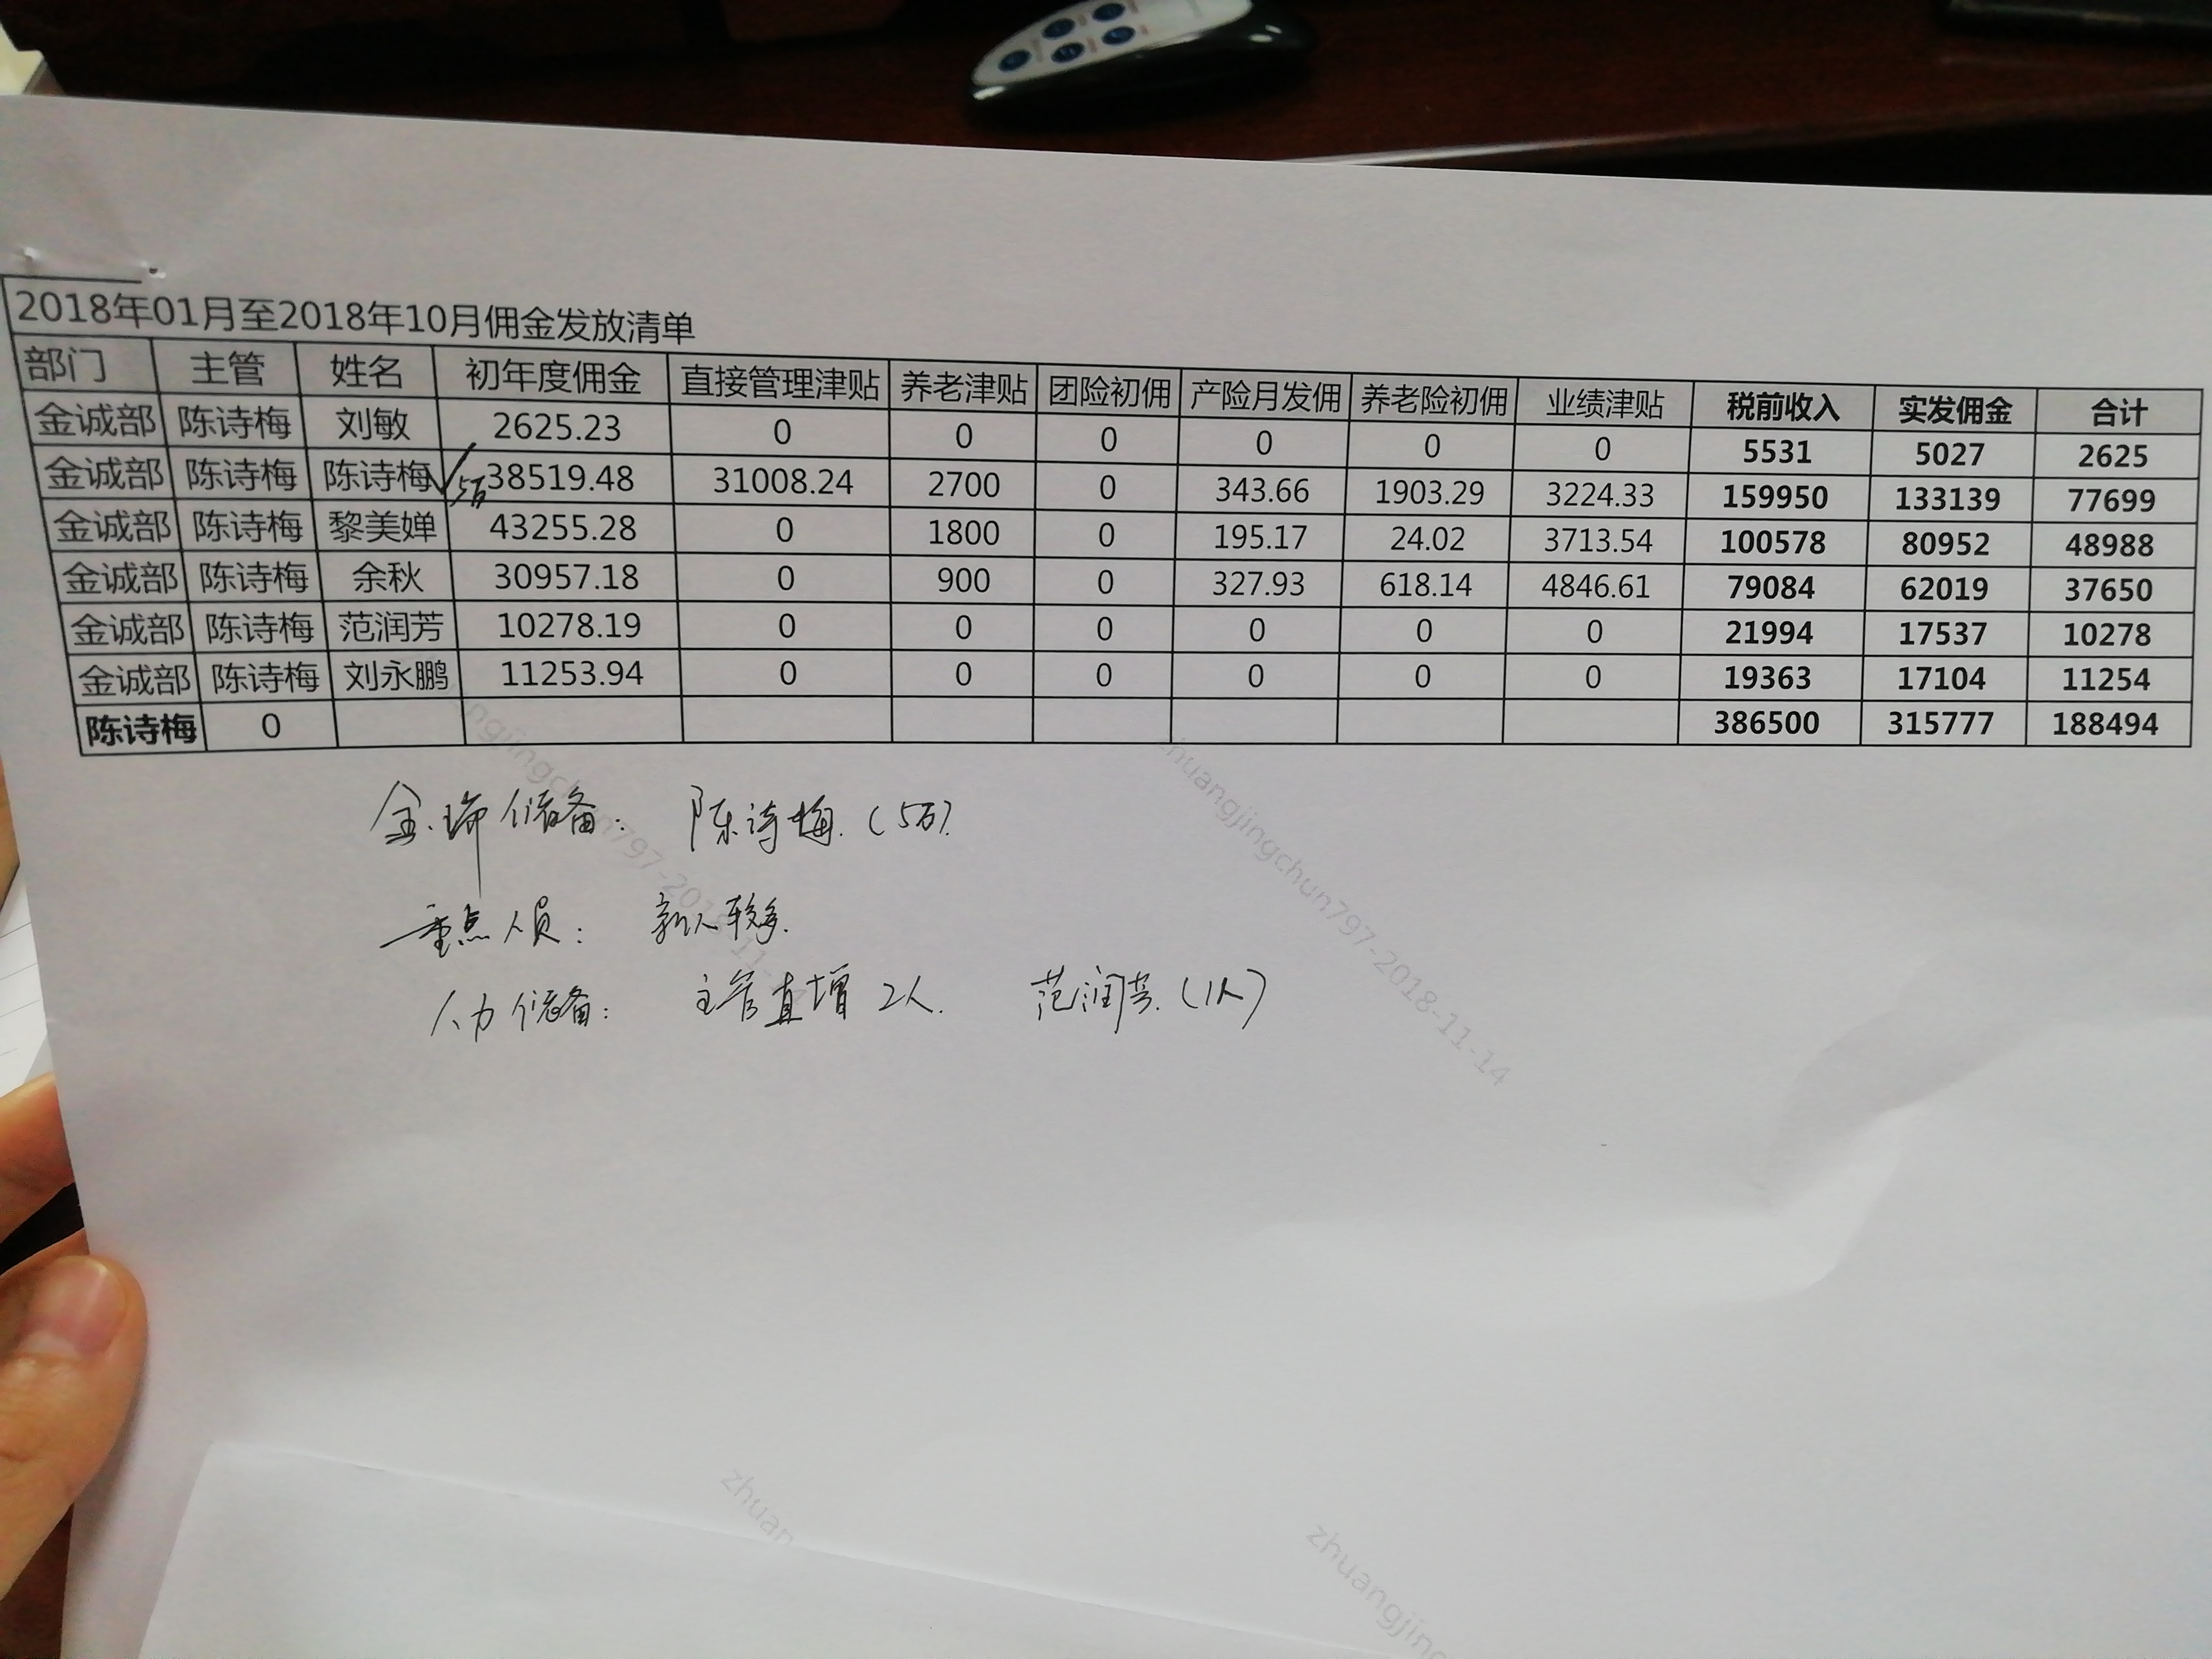 2018年01月至2018年10月佣金发放清单
部门 主管 姓名 初年度佣金 直接管理津贴 养老津贴 团险初佣 产险月发佣 养老险初佣 业绩津贴 税前收入 实发佣金 合计
金诚部 陈诗梅 刘敏 2625.23 0 0 0 0 0 0 5531 5027 2625
金诚部 陈诗梅 陈诗梅 √5万 38519.48 31008.24 2700 0 343.66 1903.29 3224.33 159950 133139 77699
金诚部 陈诗梅 黎美婵 43255.28 0 1800 0 195.17 24.02 3713.54 100578 80952 48988
金诚部 陈诗梅 余秋 30957.18 0 900 0 327.93 618.14 4846.61 79084 62019 37650
金诚部 陈诗梅 范润芳 10278.19 0 0 0 0 0 0 21994 17537 10278
金诚部 陈诗梅 刘永鹏 11253.94 0 0 0 0 0 0 19363 17104 11254
陈诗梅 0 386500 315777 188494
金瑞储备: 陈诗梅.(5万).
重点人员: 新人较多.
人力储备: 主管直增 2人. 范润芳.(1人)
ngjingchun797-2018-11-14
zhuangjingchun797-2018-11-14
zhuan
zhuangjing